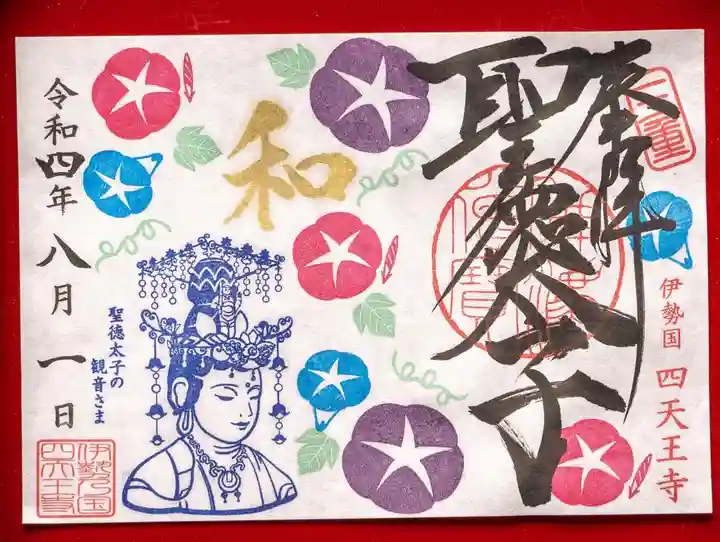 三重
奉拝
聖徳太子
佛法僧寳
伊勢国 四天王寺
和
聖徳太子の
観音さま
令和四年八月一日
伊勢乃国
四天王寺